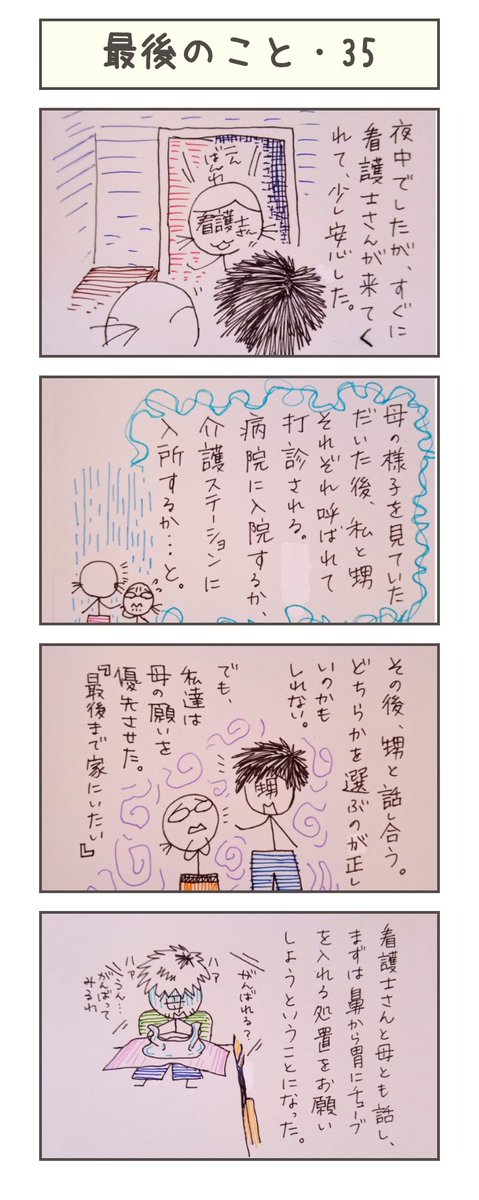 最後のこと・35
夜中でしたが、すぐに
看護士さんが来てく
れて、少し安心した。
こん
ばんわ
看護士さん
母の様子を見ていた
だいた後、私と甥
それぞれ呼ばれて
打診される。
病院に入院するか、
介護ステーションに
入所するか…と。
その後、甥と話し合う。
どちらかを選ぶのが正し
いのかも
しれない。
甥
でも、
私達は
母の願いを
優先させた。
『最後まで家にいたい』
看護士さんと母とも話し、
まずは鼻から胃にチューブ
を入れる処置をお願い
しようということになった。
がんばれる?
ハァ
ハァ
うん…
がんばって
みるわ